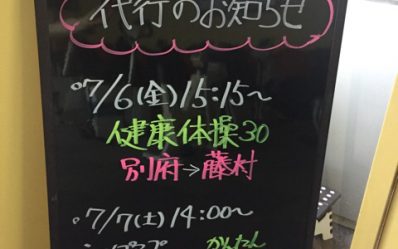 代行のお知らせ
○7/6(金)15:15〜
健康体操30
別府→藤村
○7/7(土)14:00〜
かんたん